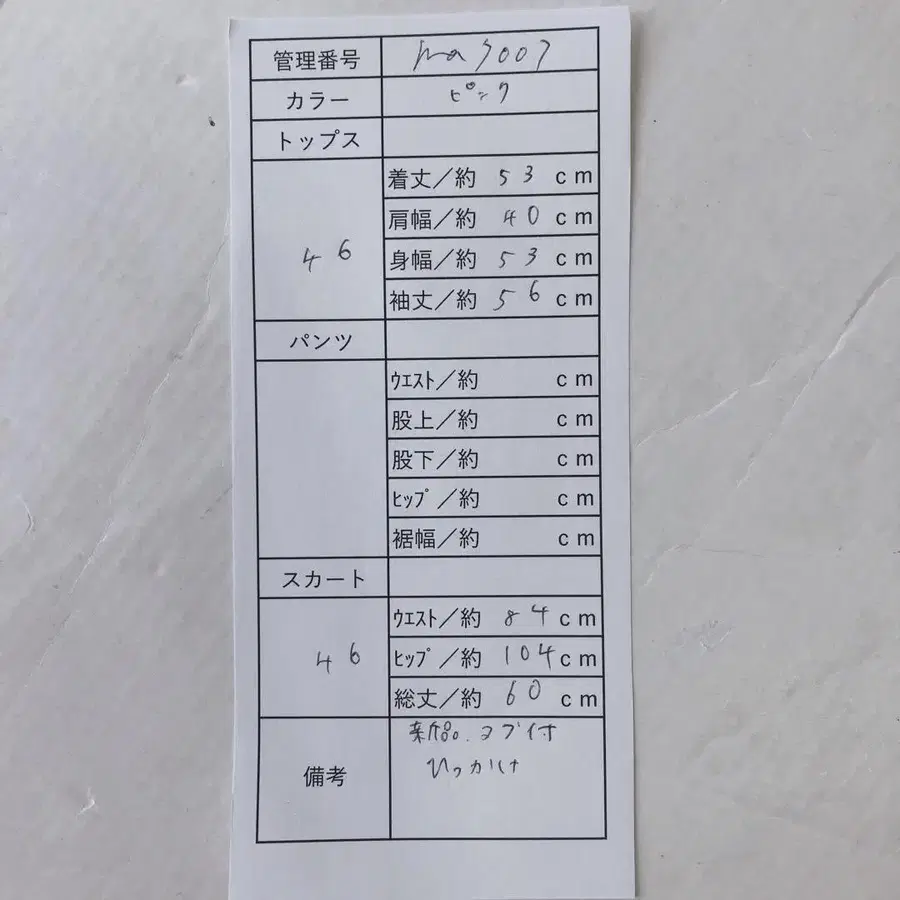 管理番号 ma7007
カラー ピンク
トップス
46
着丈／約 53 cm
肩幅／約 40 cm
身幅／約 53 cm
袖丈／約 56 cm
パンツ
ｳｴｽﾄ／約 cm
股上／約 cm
股下／約 cm
ﾋｯﾌﾟ／約 cm
裾幅／約 cm
スカート
46
ｳｴｽﾄ／約 84 cm
ﾋｯﾌﾟ／約 104 cm
総丈／約 60 cm
備考
新品.タグ付
ひっかけ